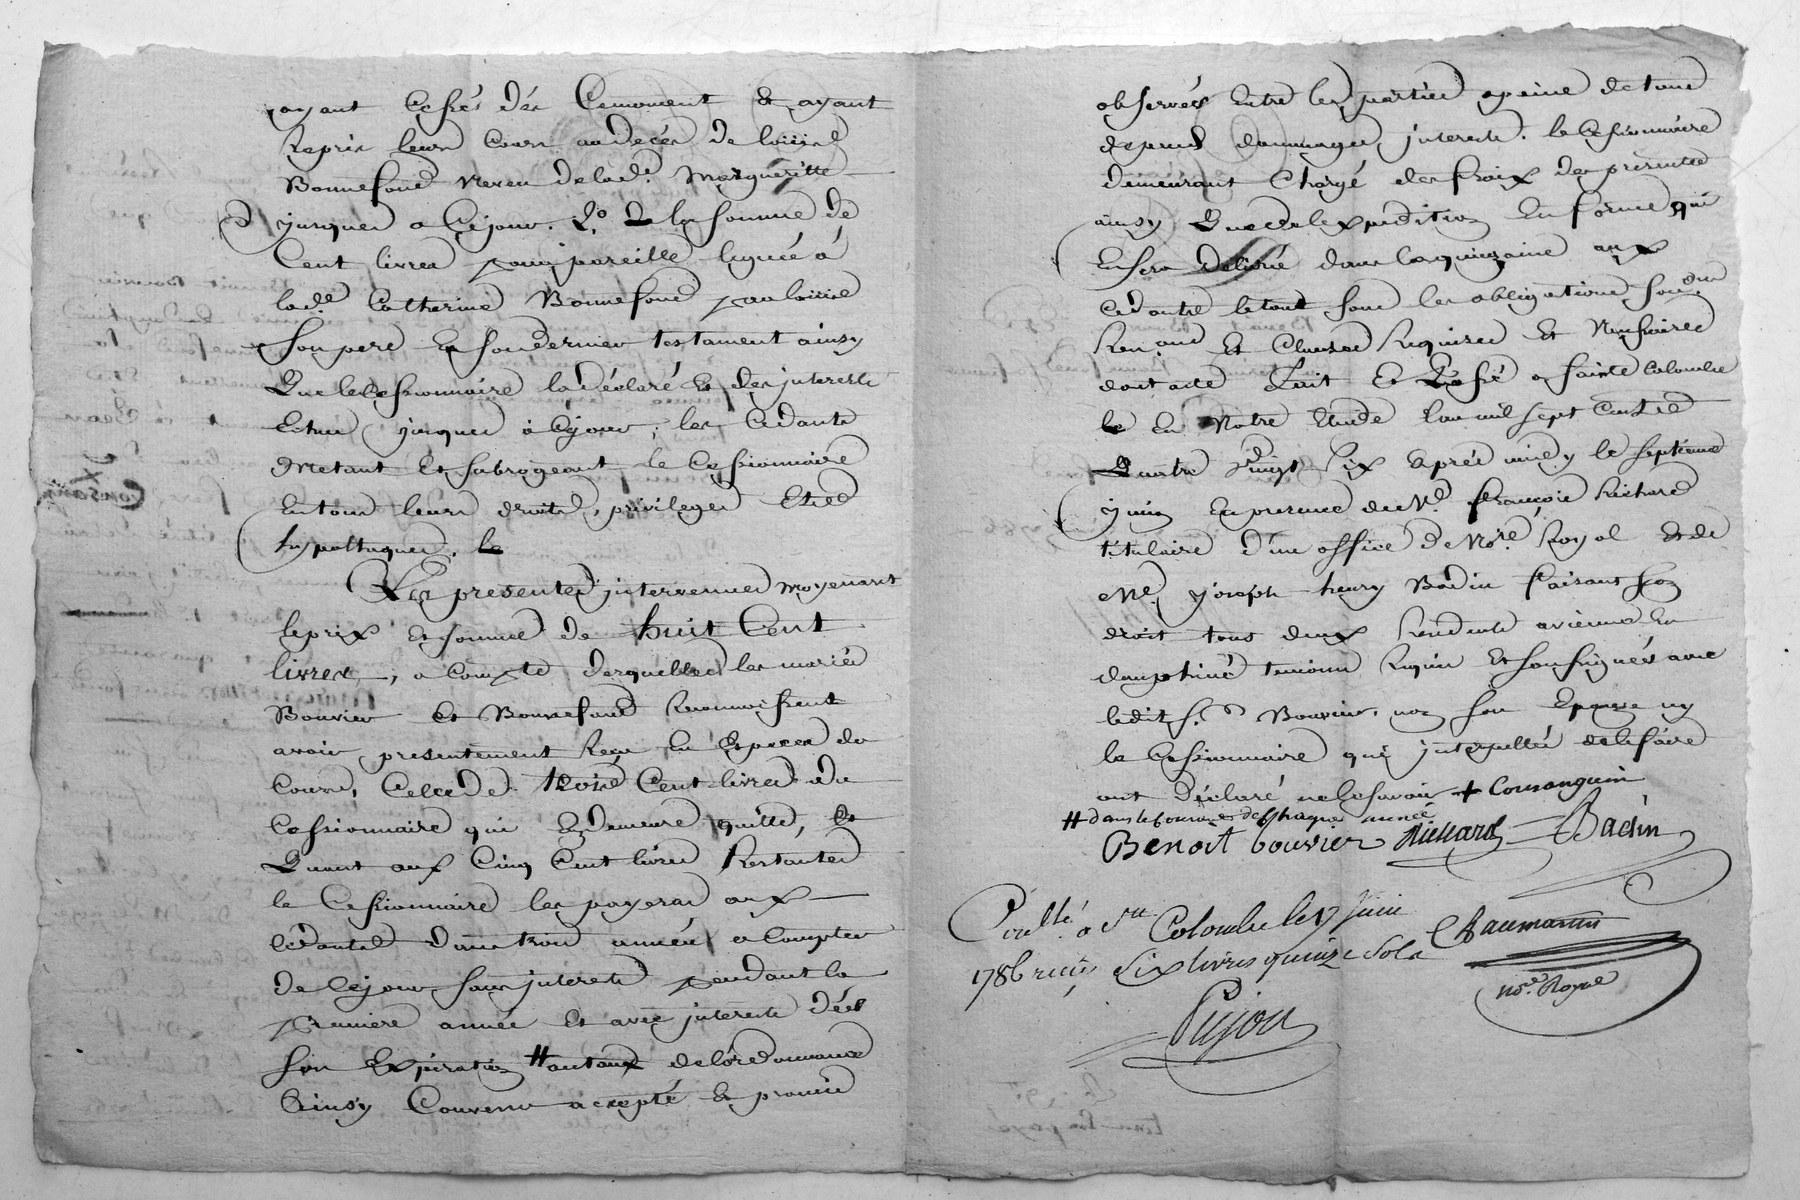 ayant cessés dés ce moment et ayant
repris leurs cours au decés de louise
Bonnefond niece de lad.e Margueritte
jusques a ce jour. 2.o de la somme de
cent livres pour pareille leguée á
lad.e Catherine Bonnefond par louise
son pere en son dernier testament ainsy
que le cessionnaire l'a déclaré et des interests
echus jusques á ce jour, les cedants
metant et subrogeant le cessionnaire
en tous leurs droits, privileges et
hypotheques. le
Les presentes intervenues moyenant
le prix et somme de huit cent
livres, a compte desquelles les mariés
Bouvier et Bonnefond reconnoissent
avoir presentement reçu en especes de
cours, celle de trois cent livres du
cessionnaire qui en demeure quitte, et
quant aux cinq cent livres restantes
le cessionnaire les payera aux
cedants dans trois années a compter
de ce jour sans interests pendant la
premiere année et avec interests dés
son expiration # au taux de l'ordonnance
ainsy convenu accepté et promis
+
Consanguin
observés entre les parties a peine de tous
depens dommages interests. le cessionnaire
demeurant chargé des fraix des presentes
ainsy que de l'expedition en forme qui
en sera delivrée dans la quinzaine aux
cedants le tout sous les obligations soum.ons
Ren.ons et clauses requises et necessaires
dont acte fait et passé a sainte Colombe
le en notre etude l'an mil sept cent
quatre vingt six aprés midy le septieme
juin en presence de M.e françois Richard
titulaire d'un office de No.re Royal et de
M.e joseph henry Badin faisant son
droit tous deux residents a vienne en
dauphiné temoins requis et soussignés avec
ledit s.r Bouvier, non son epouse ny
le cessionnaire qui interpellés de le faire
ont déclaré ne le savoir + Consanguin
# dans le courant de chaque année
Benoit bouvier Richard Badin
Con.llé a S.te Colombe le 17 Juin
1786 reçu six livres quinze sols
Pujon
Chaumartin
no.re Royal